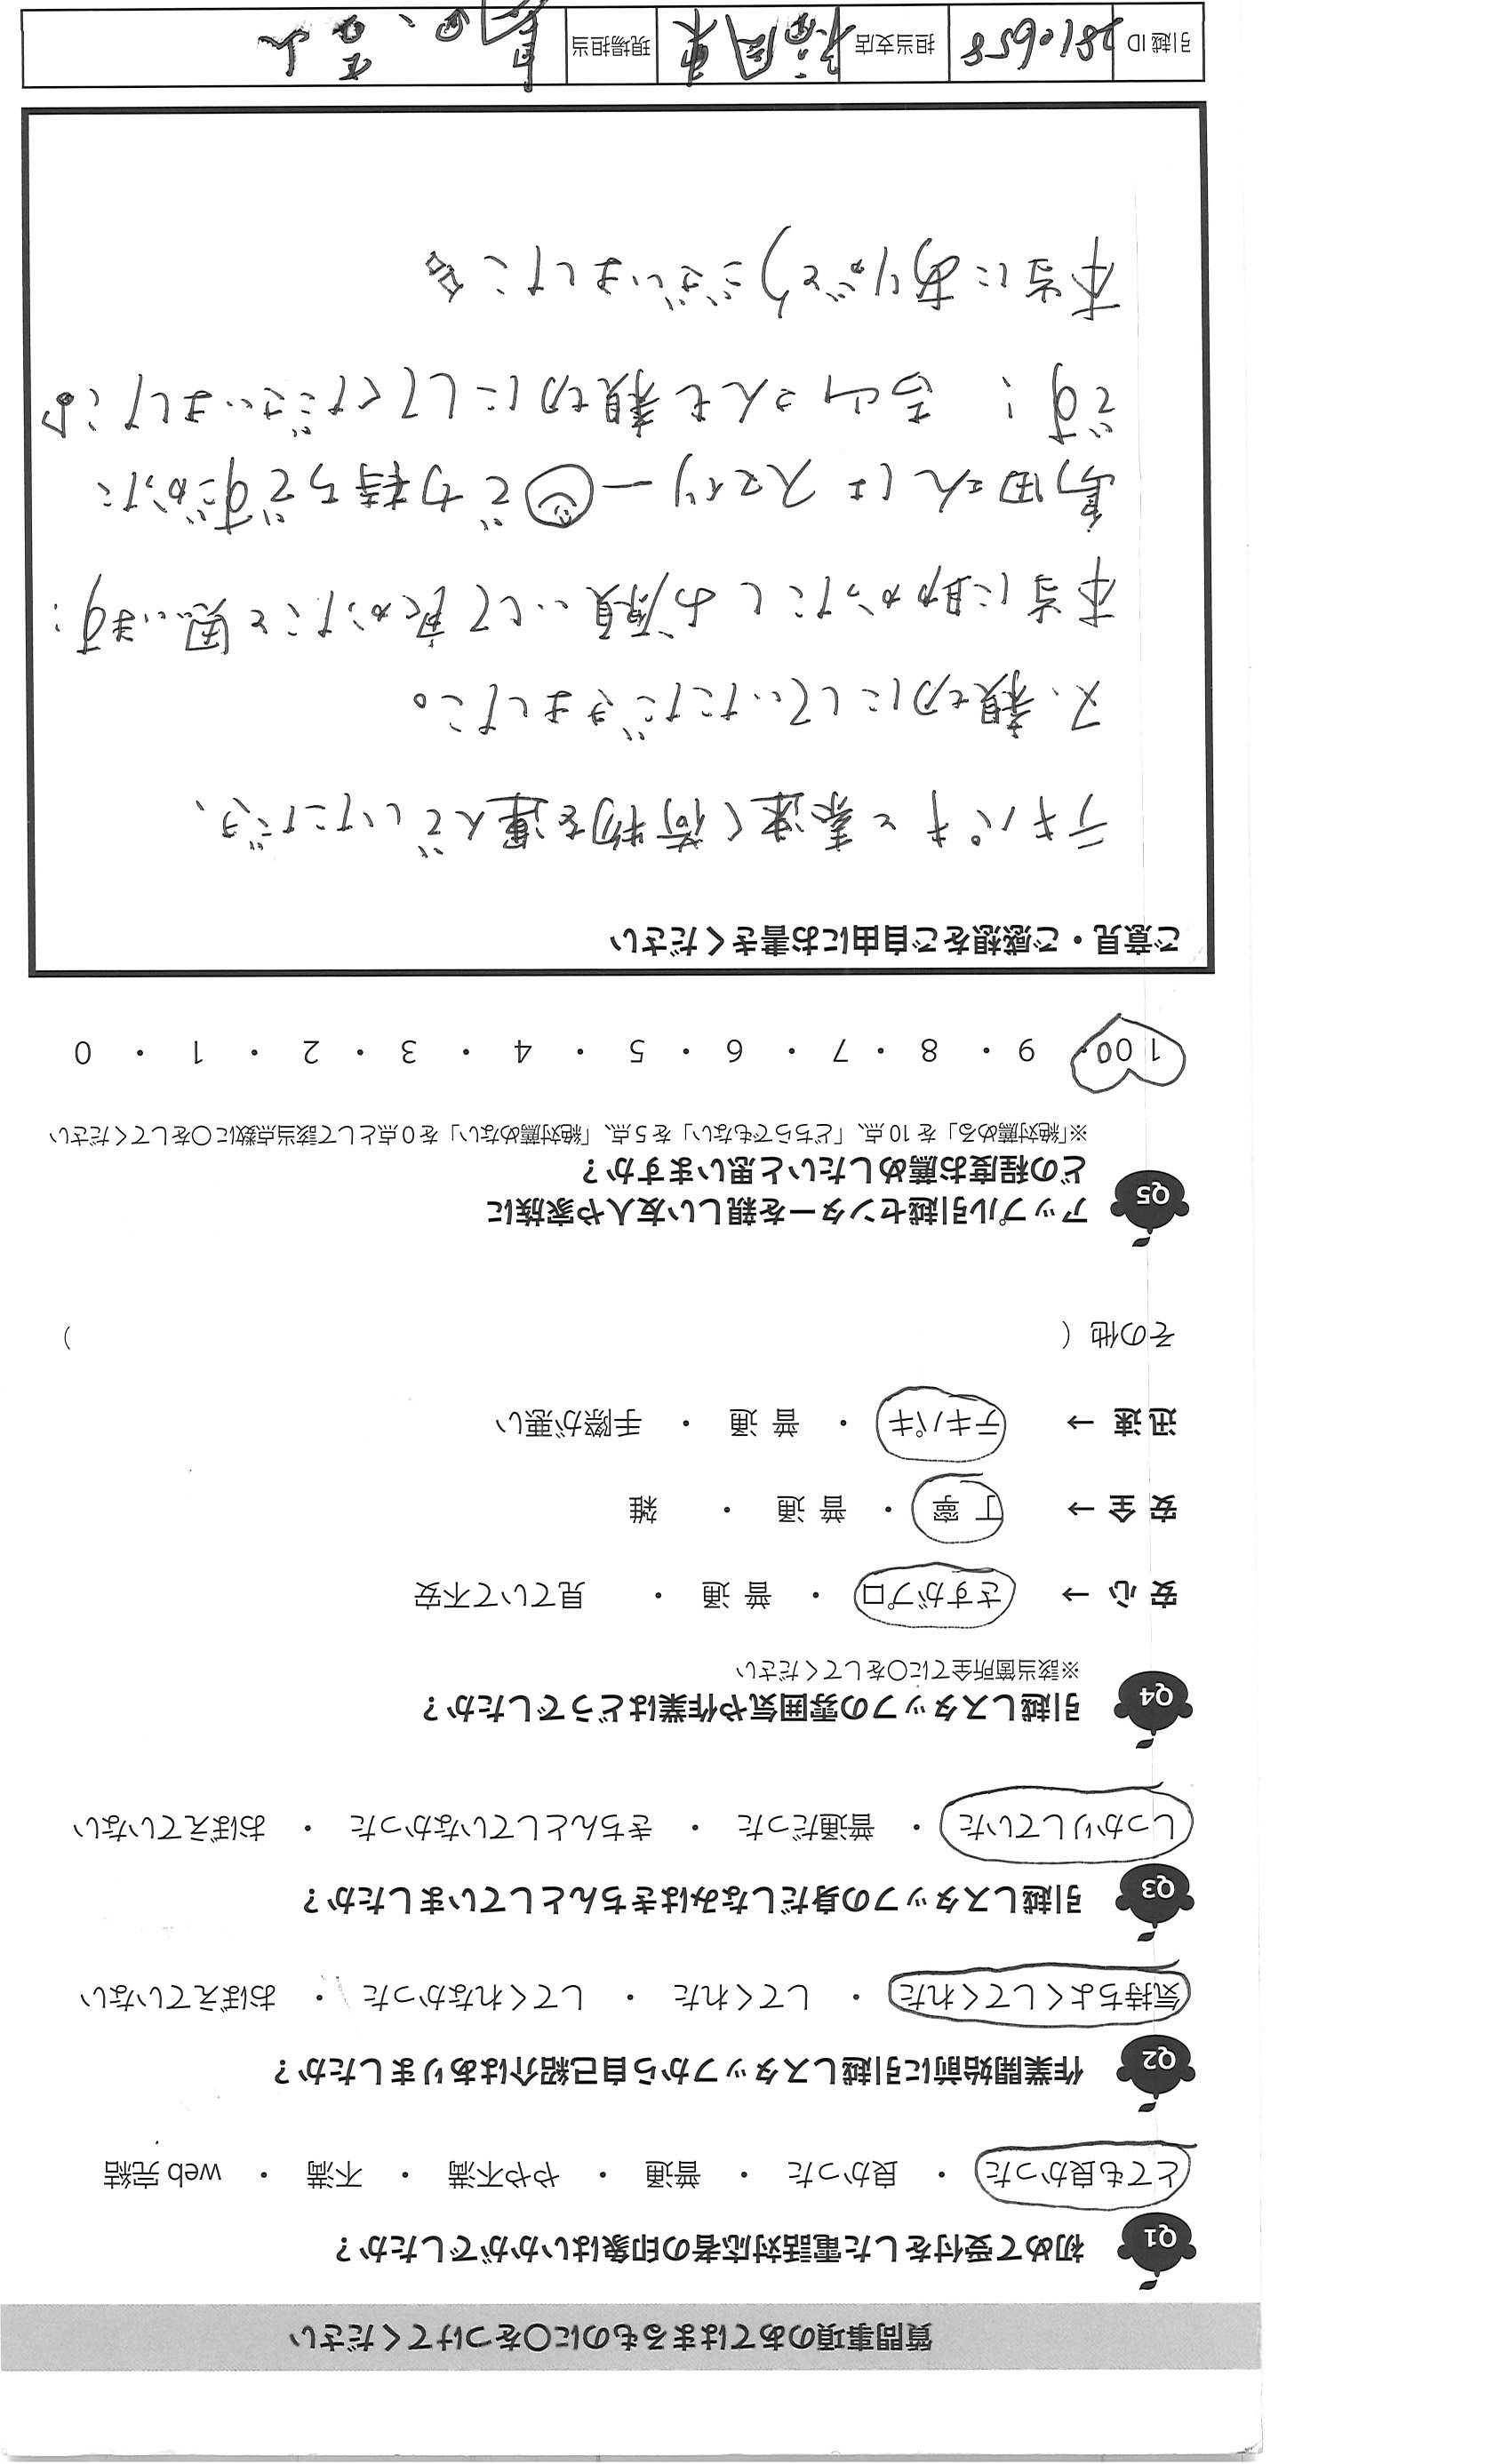 質問事項のあてはまるものに〇をつけてください
Q1 初めて受付をした電話対応者の印象はいかがでしたか？
とても良かった ・ 良かった ・ 普通 ・ やや不満 ・ 不満 ・ web 完結
Q2 作業開始前に引越しスタッフから自己紹介はありましたか？
気持ちよくしてくれた ・ してくれた ・ してくれなかった ・ おぼえていない
Q3 引越しスタッフの身だしなみはきちんとしていましたか？
しっかりしていた ・ 普通だった ・ きちんとしていなかった ・ おぼえていない
Q4 引越しスタッフの雰囲気や作業はどうでしたか？
※該当箇所全てに〇をしてください
安 心 → さすがプロ ・ 普 通 ・ 見ていて不安
安 全 → 丁 寧 ・ 普 通 ・ 雑
迅 速 → テキパキ ・ 普 通 ・ 手際が悪い
その他（ ）
Q5 アップル引越センターを親しい友人や家族に
どの程度お薦めしたいと思いますか？
※「絶対薦める」を 10 点、「どちらでもない」を 5 点、「絶対薦めない」を 0 点として該当点数に〇をしてください
100 ・ 9 ・ 8 ・ 7 ・ 6 ・ 5 ・ 4 ・ 3 ・ 2 ・ 1 ・ 0
ご意見・ご感想をご自由にお書きください
テキパキと素速く荷物を運んでいただき、
又、親切にしていただきました。
本当に助かったしお願いして良かったと思います!
島田さんはスマイリー で力持ちですごかった
です! 吉山さんも親切にしてくださいました
本当にありがとうございました
引越 ID 2810658 担当支店 福岡東 現場担当 島田、吉山